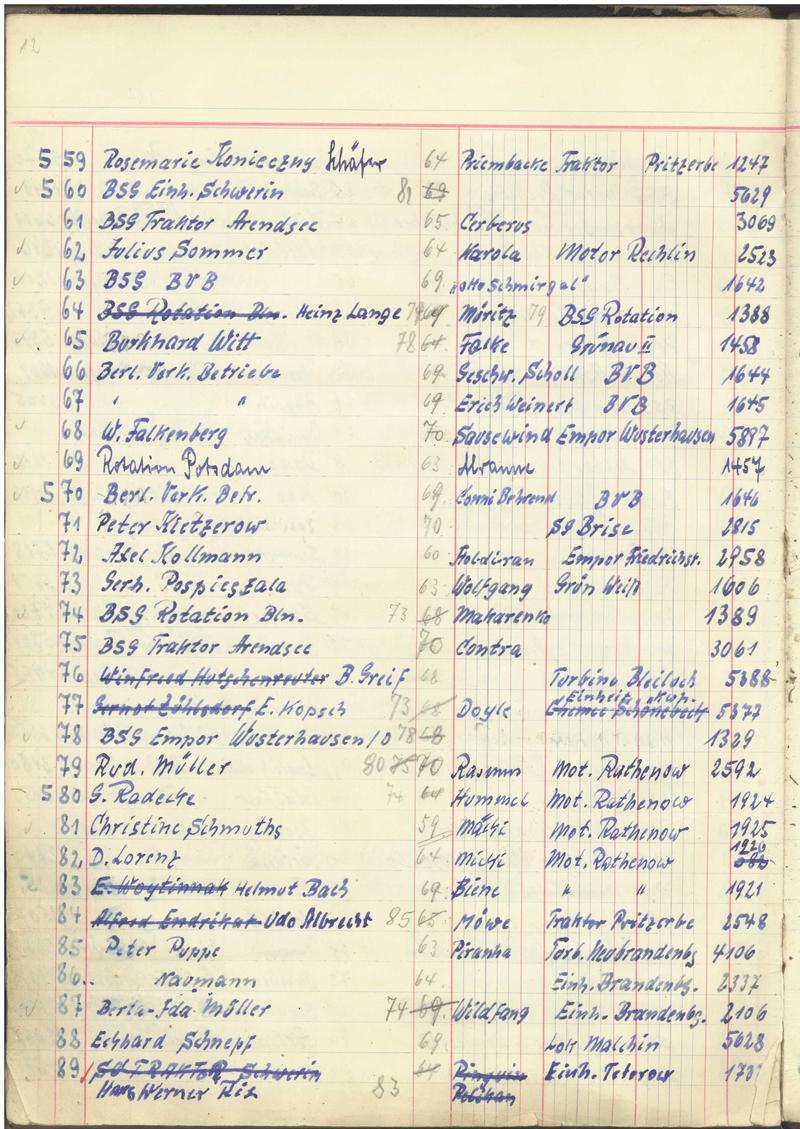 12
5 59 Rosemarie Konieczny Schäfer 64 Priembacke Traktor Pritzerbe 1247
5 60 BSG Einh. Schwerin 81 69 5629
61 BSG Traktor Arendsee 65. Cerberus 3069
62 Julius Sommer 64 Karola Motor Rechlin 2523
63 BSG BVB 69. "Otto Schmirgel" 1642
64 BSG Rotation Bln. Heinz Lange 79 69 Moritz 79 BSG Rotation 1388
65 Burkhard Witt 78 64 Falke Grünau II 1458
66 Berl. Verk. Betriebe 69. Geschw. Scholl BVB 1644
67 " " 69. Erich Weinert BVB 1645
68 W. Falkenberg 70. Sausewind Empor Wusterhausen 5887
69 Rotation Potsdam 63 Alraune 1457
5 70 Berl. Verk. Betr. 69. Conni Behrend BVB 1646
71 Peter Kietzerow 70. SG Brise 2815
72 Axel Kollmann 60 Empor Friedrichst. 2958
73 Gerh. Pospieszala 63. Wolfgang Grün Weiß 1606
74 BSG Rotation Bln. 73 68 Makarenko 1389
75 BSG Traktor Arendsee 70 Contra 3061
76 Winfried Hutschenreuter B. Greif 68 Turbine Bleiloch 5388
Einheit
77 Gernot Zühlsdorf E. Kopsch 73 68 Doyle Chemie Schönebeck 5377
78 BSG Empor Wusterhausen/D 78 68 1329
79 Rud. Müller 80 75 70 Rasmus Mot. Rathenow 2592
5 80 G. Radecke 74 64 Hummel Mot. Rathenow 1924
81 Christine Schmuths 59. Mäcki Mot. Rathenow 1925
1226
82 D. Lorenz 64. Micki Mot. Rathenow
83 E. Woytinnak Helmut Bach 69. Biene " " 1921
84 Alfred Endrikat Udo Albrecht 85 65 Möwe Traktor Pritzerbe 2548
85 Peter Puppe 63 Piranha Turb. Neubrandenbg 4106
86.. Naumann 64. Einh. Brandenbg. 2337
87 Berta-Ida Müller 74 69 Wildfang Einh. Brandenbg. 2106
88 Eckhard Schnepf 69. Lok Malchin 5628
89 SG TRAKTOR Schwerin Pinguin Einh. Teterow
Hans Werner 83 Pelikan